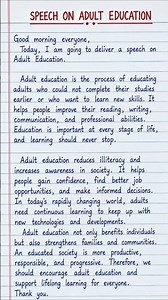 SPEECH ON ADULT EDUCATION
Good morning everyone,
Today, I am going to deliver a speech on
Adult Education.
Adult education is the process of educating
adults who could not complete their studies
earlier or who want to learn new skills. It
helps people improve their reading, writing,
communication, and professional abilities.
Education is important at every stage of life,
and learning should never stop.
Adult education reduces illiteracy and
increases awareness in society. It helps
people gain confidence, find better job
opportunities, and make informed decisions.
In today's rapidly changing world, adults
need continuous learning to keep up with
new technologies and developments.
Adult education not only benefits individuals
but also strengthens families and communities.
An educated society is more productive,
responsible, and progressive. Therefore, we
should encourage adult education and
support lifelong learning for everyone.
Thank you.